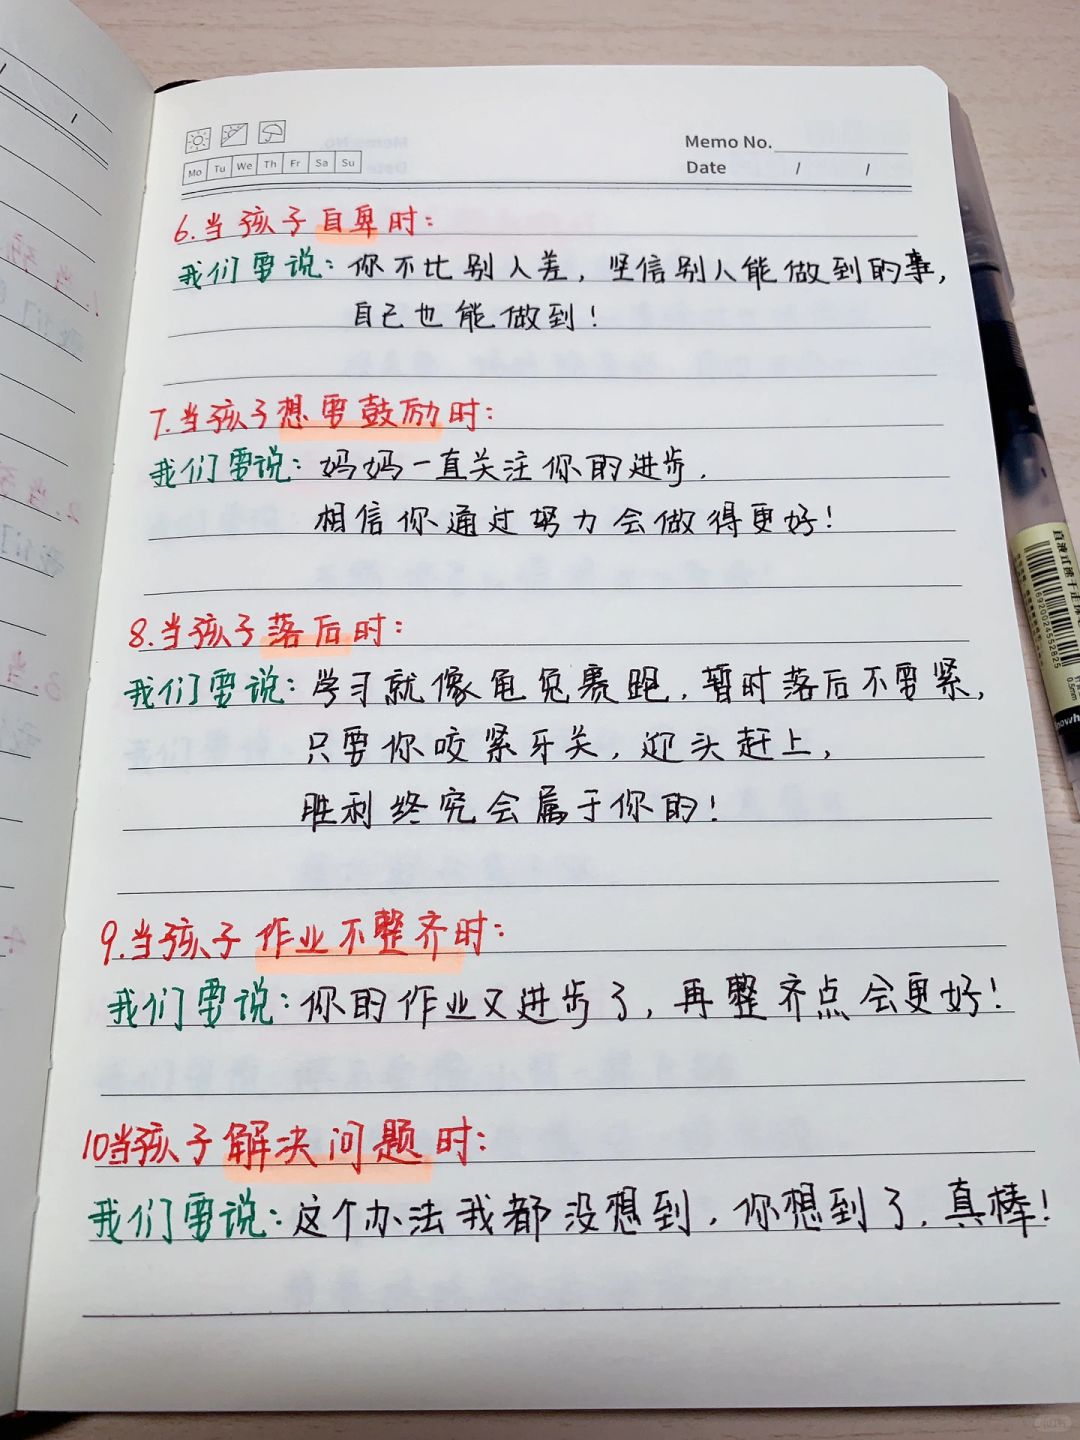 Memo No.
Mo Tu We Th Fr Sa Su
Date / /
6.当孩子自卑时:
我们要说:你不比别人差，坚信别人能做到的事，
自己也能做到!
7.当孩子想要鼓励时:
我们要说:妈妈一直关注你的进步.
相信你通过努力会做得更好!
8.当孩子落后时:
我们要说:学习就像龟兔赛跑，暂时落后不要紧，
只要你咬紧牙关，迎头赶上，
胜利终究会属于你的!
9.当孩子作业不整齐时:
我们要说:你的作业又进步了，再整齐点会更好!
10当孩子解决问题时:
我们要说:这个办法我都没想到，你想到了，真棒!
直液式
6920026552825
0.5mm